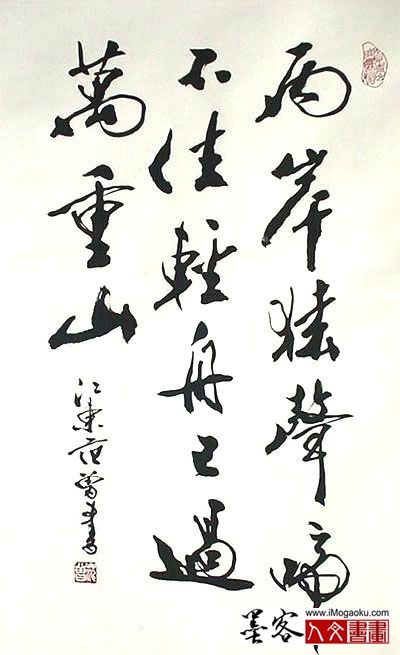 兩岸猿聲啼
不住輕舟已過
萬重山
江東范曾書
www.iMogaoku.com
墨客
人文書畫